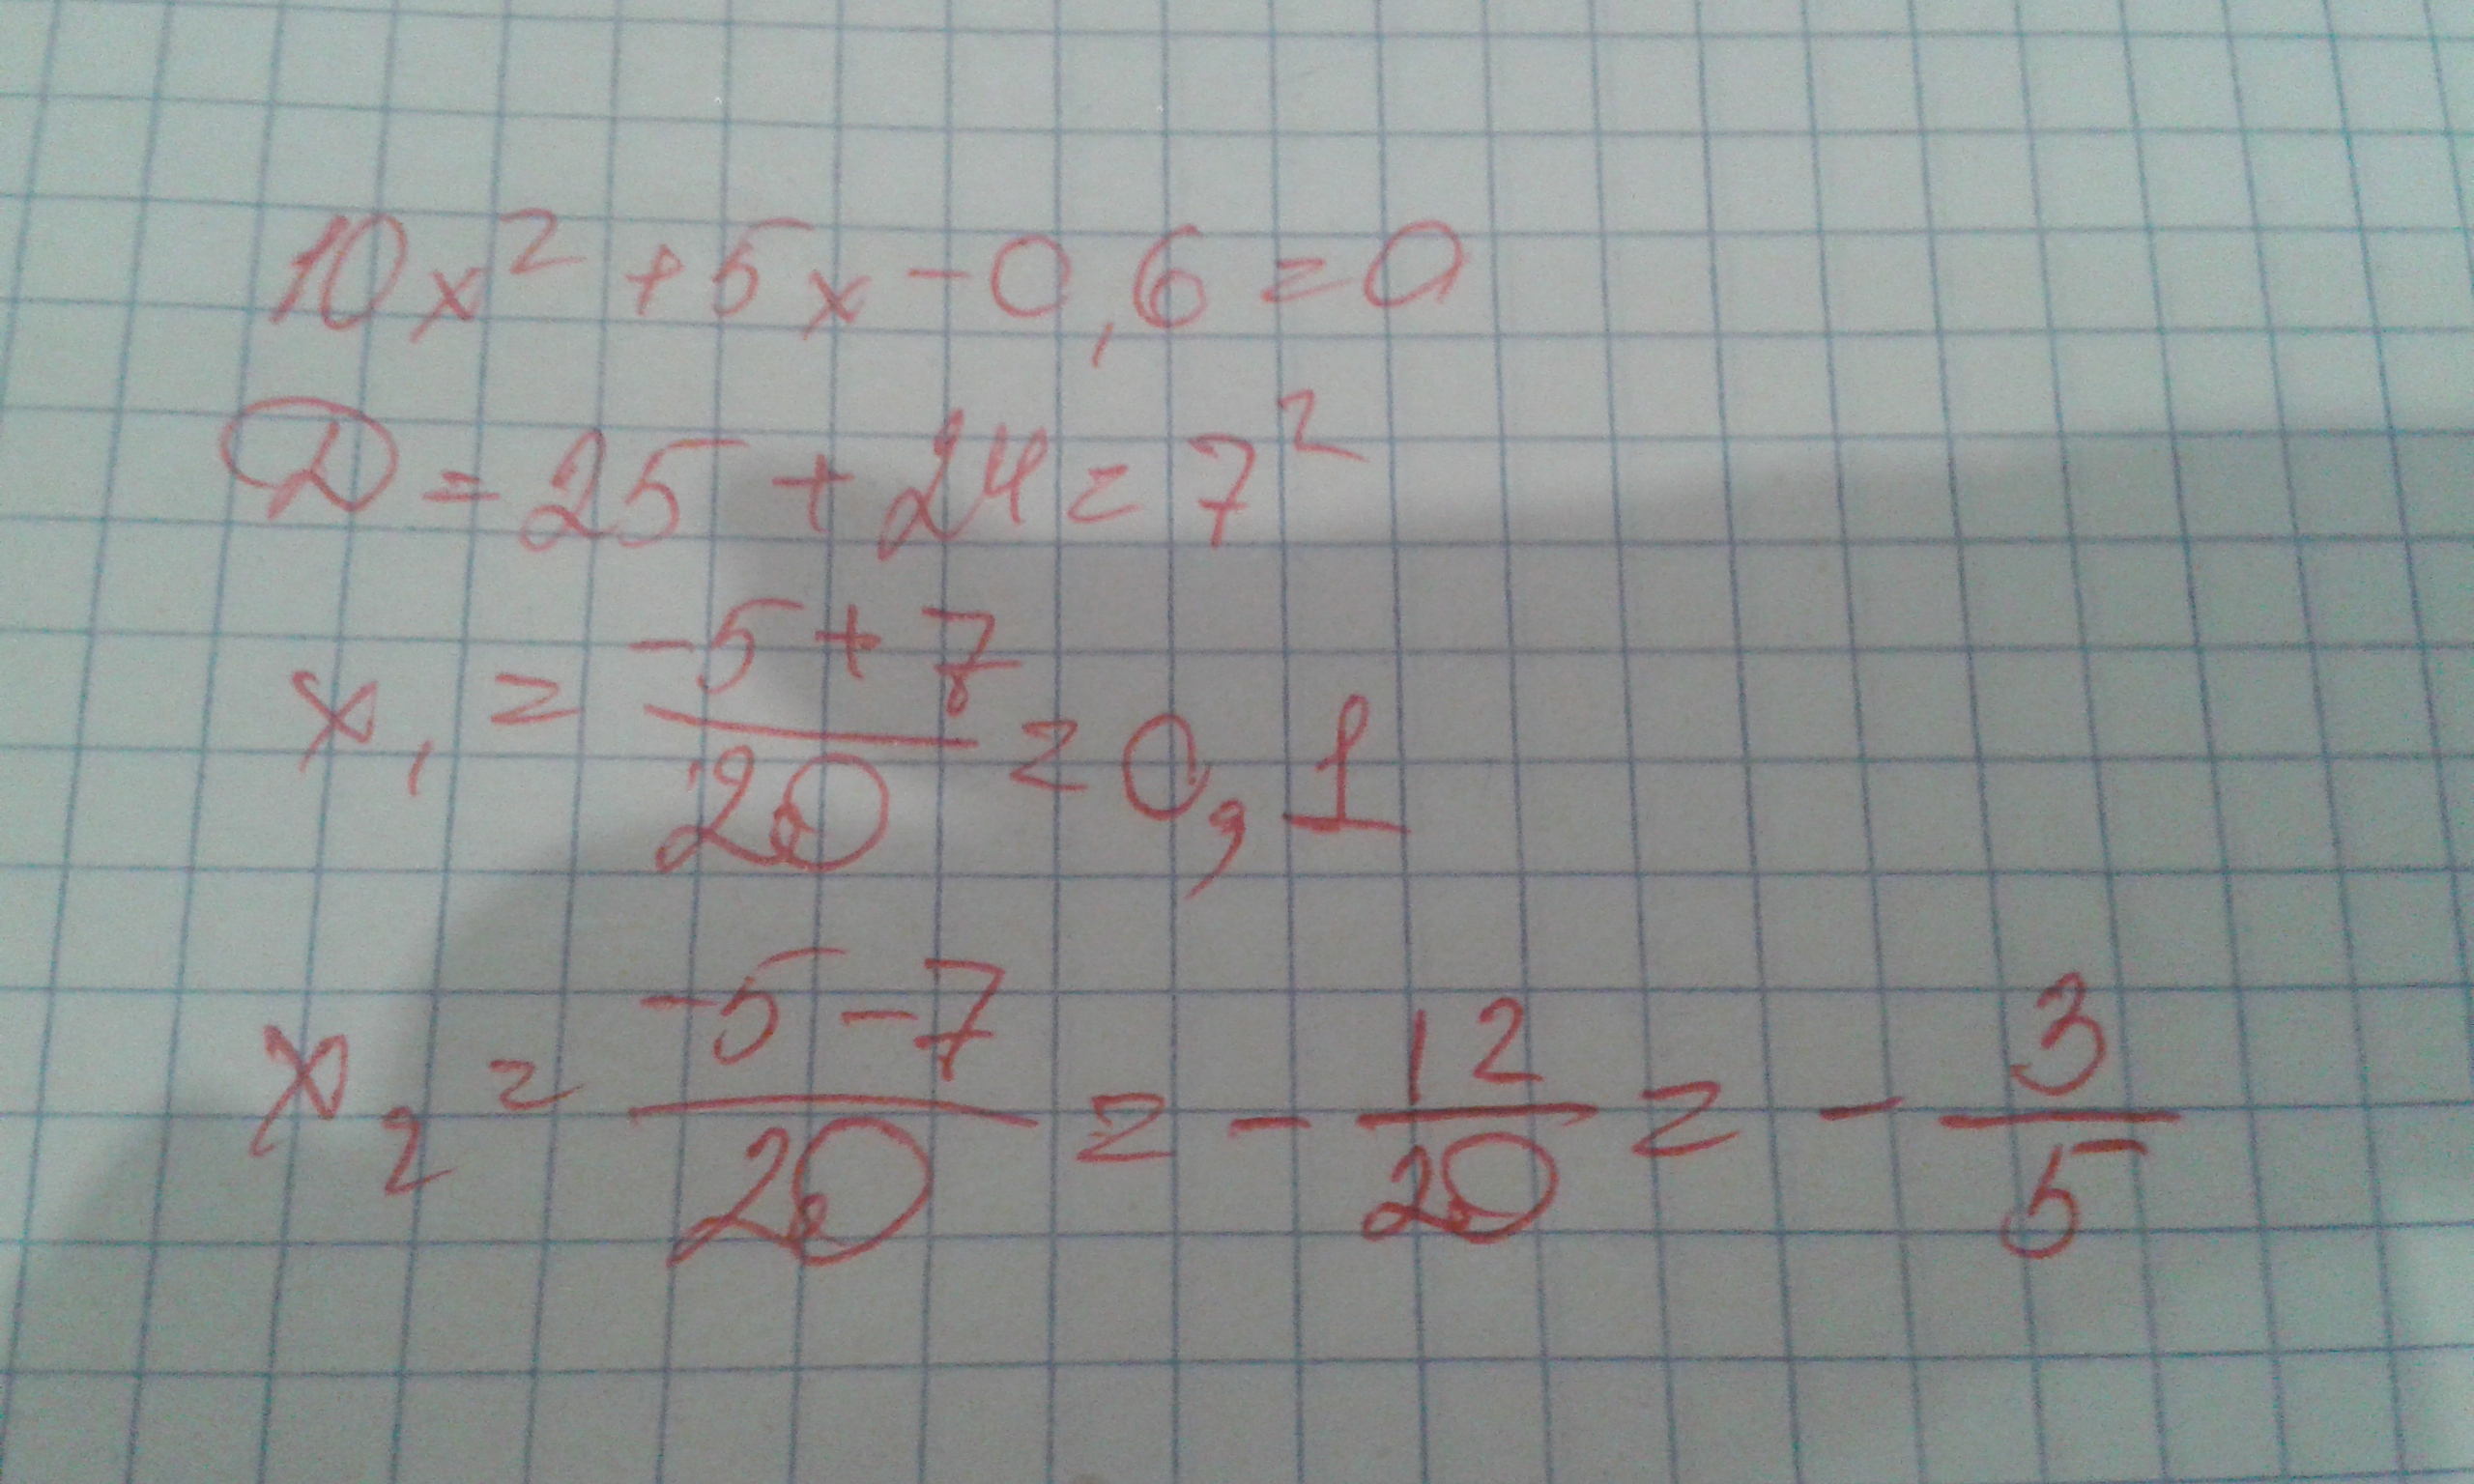 10x² + 5x - 0,6 = 0
D = 25 + 24 = 7²
x₁ = (-5 + 7)/20 = 0,1
x₂ = (-5 - 7)/20 = - 12/20 = - 3/5